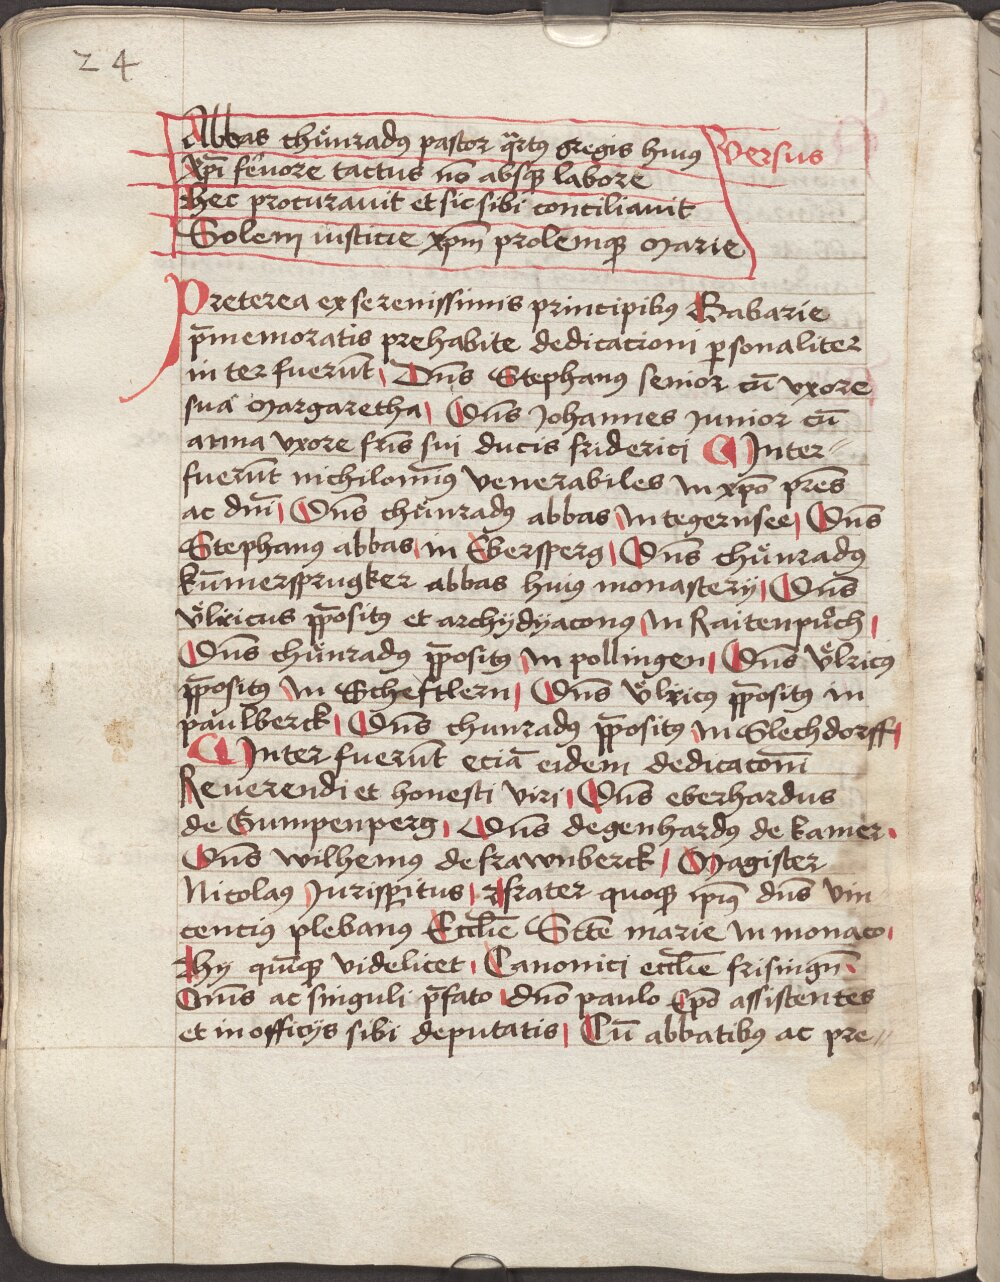 24
Abbas chůnradꝯ pastor qͣrtꝯ gregis huiꝯ versus
xp̄i feruore tactus nō absqꝫ labore
Hec procurauit et sic sibi conciliauit
Solem iusticie xp̄m prolemqꝫ Marie
Preterea ex serenissimis principibꝯ Babarie
p̄memoratis prehabite dedicacioni ꝑsonaliter
interfuerūt Dn̄s Stephanꝯ senior cū vxore
sua Margaretha Dn̄s Johannes Junior cū
anna vxore fr̄is sui ducis friderici Inter
fuerūt nichilomīꝯ venerabiles in xp̄o pr̄es
ac dn̄i Dn̄s chůnradꝯ abbas in tegernsee Dn̄s
Stephanꝯ abbas in Ebersperg Dn̄s chůnradꝯ
kūmersprugker abbas huiꝯ monastery Dn̄s
vͦlricus p̄positꝯ et archydyaconꝯ in Raitenpůch
Dn̄s chůnradꝯ p̄positꝯ in pollingen Dn̄s vͦlricꝯ
p̄positꝯ in Scheftlern Dn̄s vͦlricꝯ p̄positꝯ in
paulberck Dn̄s chunradꝯ p̄positꝯ in Slechdorff
Inter fuerūt eciā eidem dedicacōni
Reuerendi et honesti viri Dn̄s eberhardus
de Gumpenperg Dn̄s degenhardꝯ de kamer
Dn̄s wilhemꝯ de frawnberck Magister
Nicolaꝯ Jurisꝑitus frater quoqꝫ ip̄iꝯ dn̄s vin
centiꝯ plebanꝯ Eccl̄ie Sc̄te marie in monaco
Hy quīqꝫ videlicet Canonici eccl̄ie frisingn̄
Om̄s ac singuli p̄fato dn̄o paulo Ep̄o assistentes
et in officijs sibi deputatis Cū abbatibꝯ ac pre